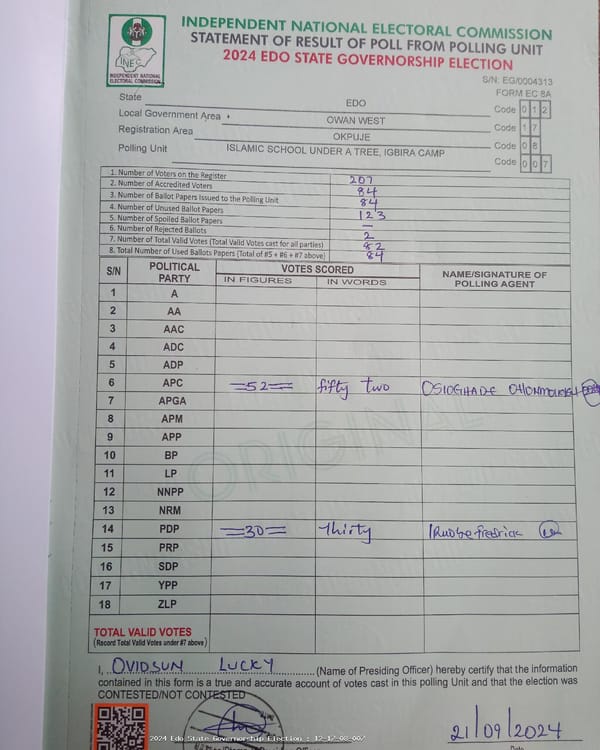 INDEPENDENT NATIONAL ELECTORAL COMMISSION
STATEMENT OF RESULT OF POLL FROM POLLING UNIT
2024 EDO STATE GOVERNORSHIP ELECTION
INEC
INDEPENDENT NATIONAL
ELECTORAL COMMISSION
S/N: EG/0004313
FORM EC 8A
State EDO Code 0 1 2
Local Government Area OWAN WEST Code 1 7
Registration Area OKPUJE Code 0 8
Polling Unit ISLAMIC SCHOOL UNDER A TREE, IGBIRA CAMP Code 0 0 7
1. Number of Voters on the Register 207
2. Number of Accredited Voters 84
3. Number of Ballot Papers Issued to the Polling Unit 84
4. Number of Unused Ballot Papers 123
5. Number of Spoiled Ballot Papers –
6. Number of Rejected Ballots 2
7. Number of Total Valid Votes (Total Valid Votes cast for all parties) 82
8. Total Number of Used Ballots Papers (Total of #5 + #6 + #7 above) 84
S/N POLITICAL PARTY VOTES SCORED NAME/SIGNATURE OF POLLING AGENT
IN FIGURES IN WORDS
1 A
2 AA
3 AAC
4 ADC
5 ADP
6 APC =52= fifty two OSIOGHADE
7 APGA
8 APM
9 APP
10 BP
11 LP
12 NNPP
13 NRM
14 PDP =30= Thirty Fredrick
15 PRP
16 SDP
17 YPP
18 ZLP
ORIGINAL
TOTAL VALID VOTES
(Record Total Valid Votes under #7 above)
I, OVIDSUN LUCKY (Name of Presiding Officer) hereby certify that the information
contained in this form is a true and accurate account of votes cast in this polling Unit and that the election was
CONTESTED/NOT CONTESTED
21/09/2024
Date
2024 Edo State Governorship Election : 12-17-08-007